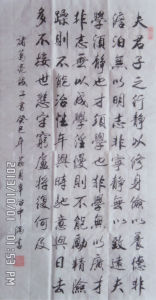 夫君子之行静以修身儉以養德非
澹泊無以明志非寧静無以致遠夫
學須静也才須學也非學無以廣才
非志無以成學慢則不能勵精險
躁則不能治性年與時馳意與日去
多不接世悲守窮廬將復何及
諸葛亮诫子書癸巳年